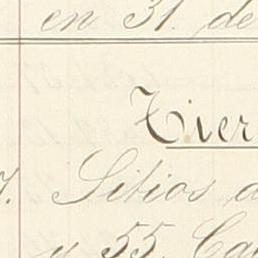 en 31. de
Tier
7. Sitios d
y 55. Ca